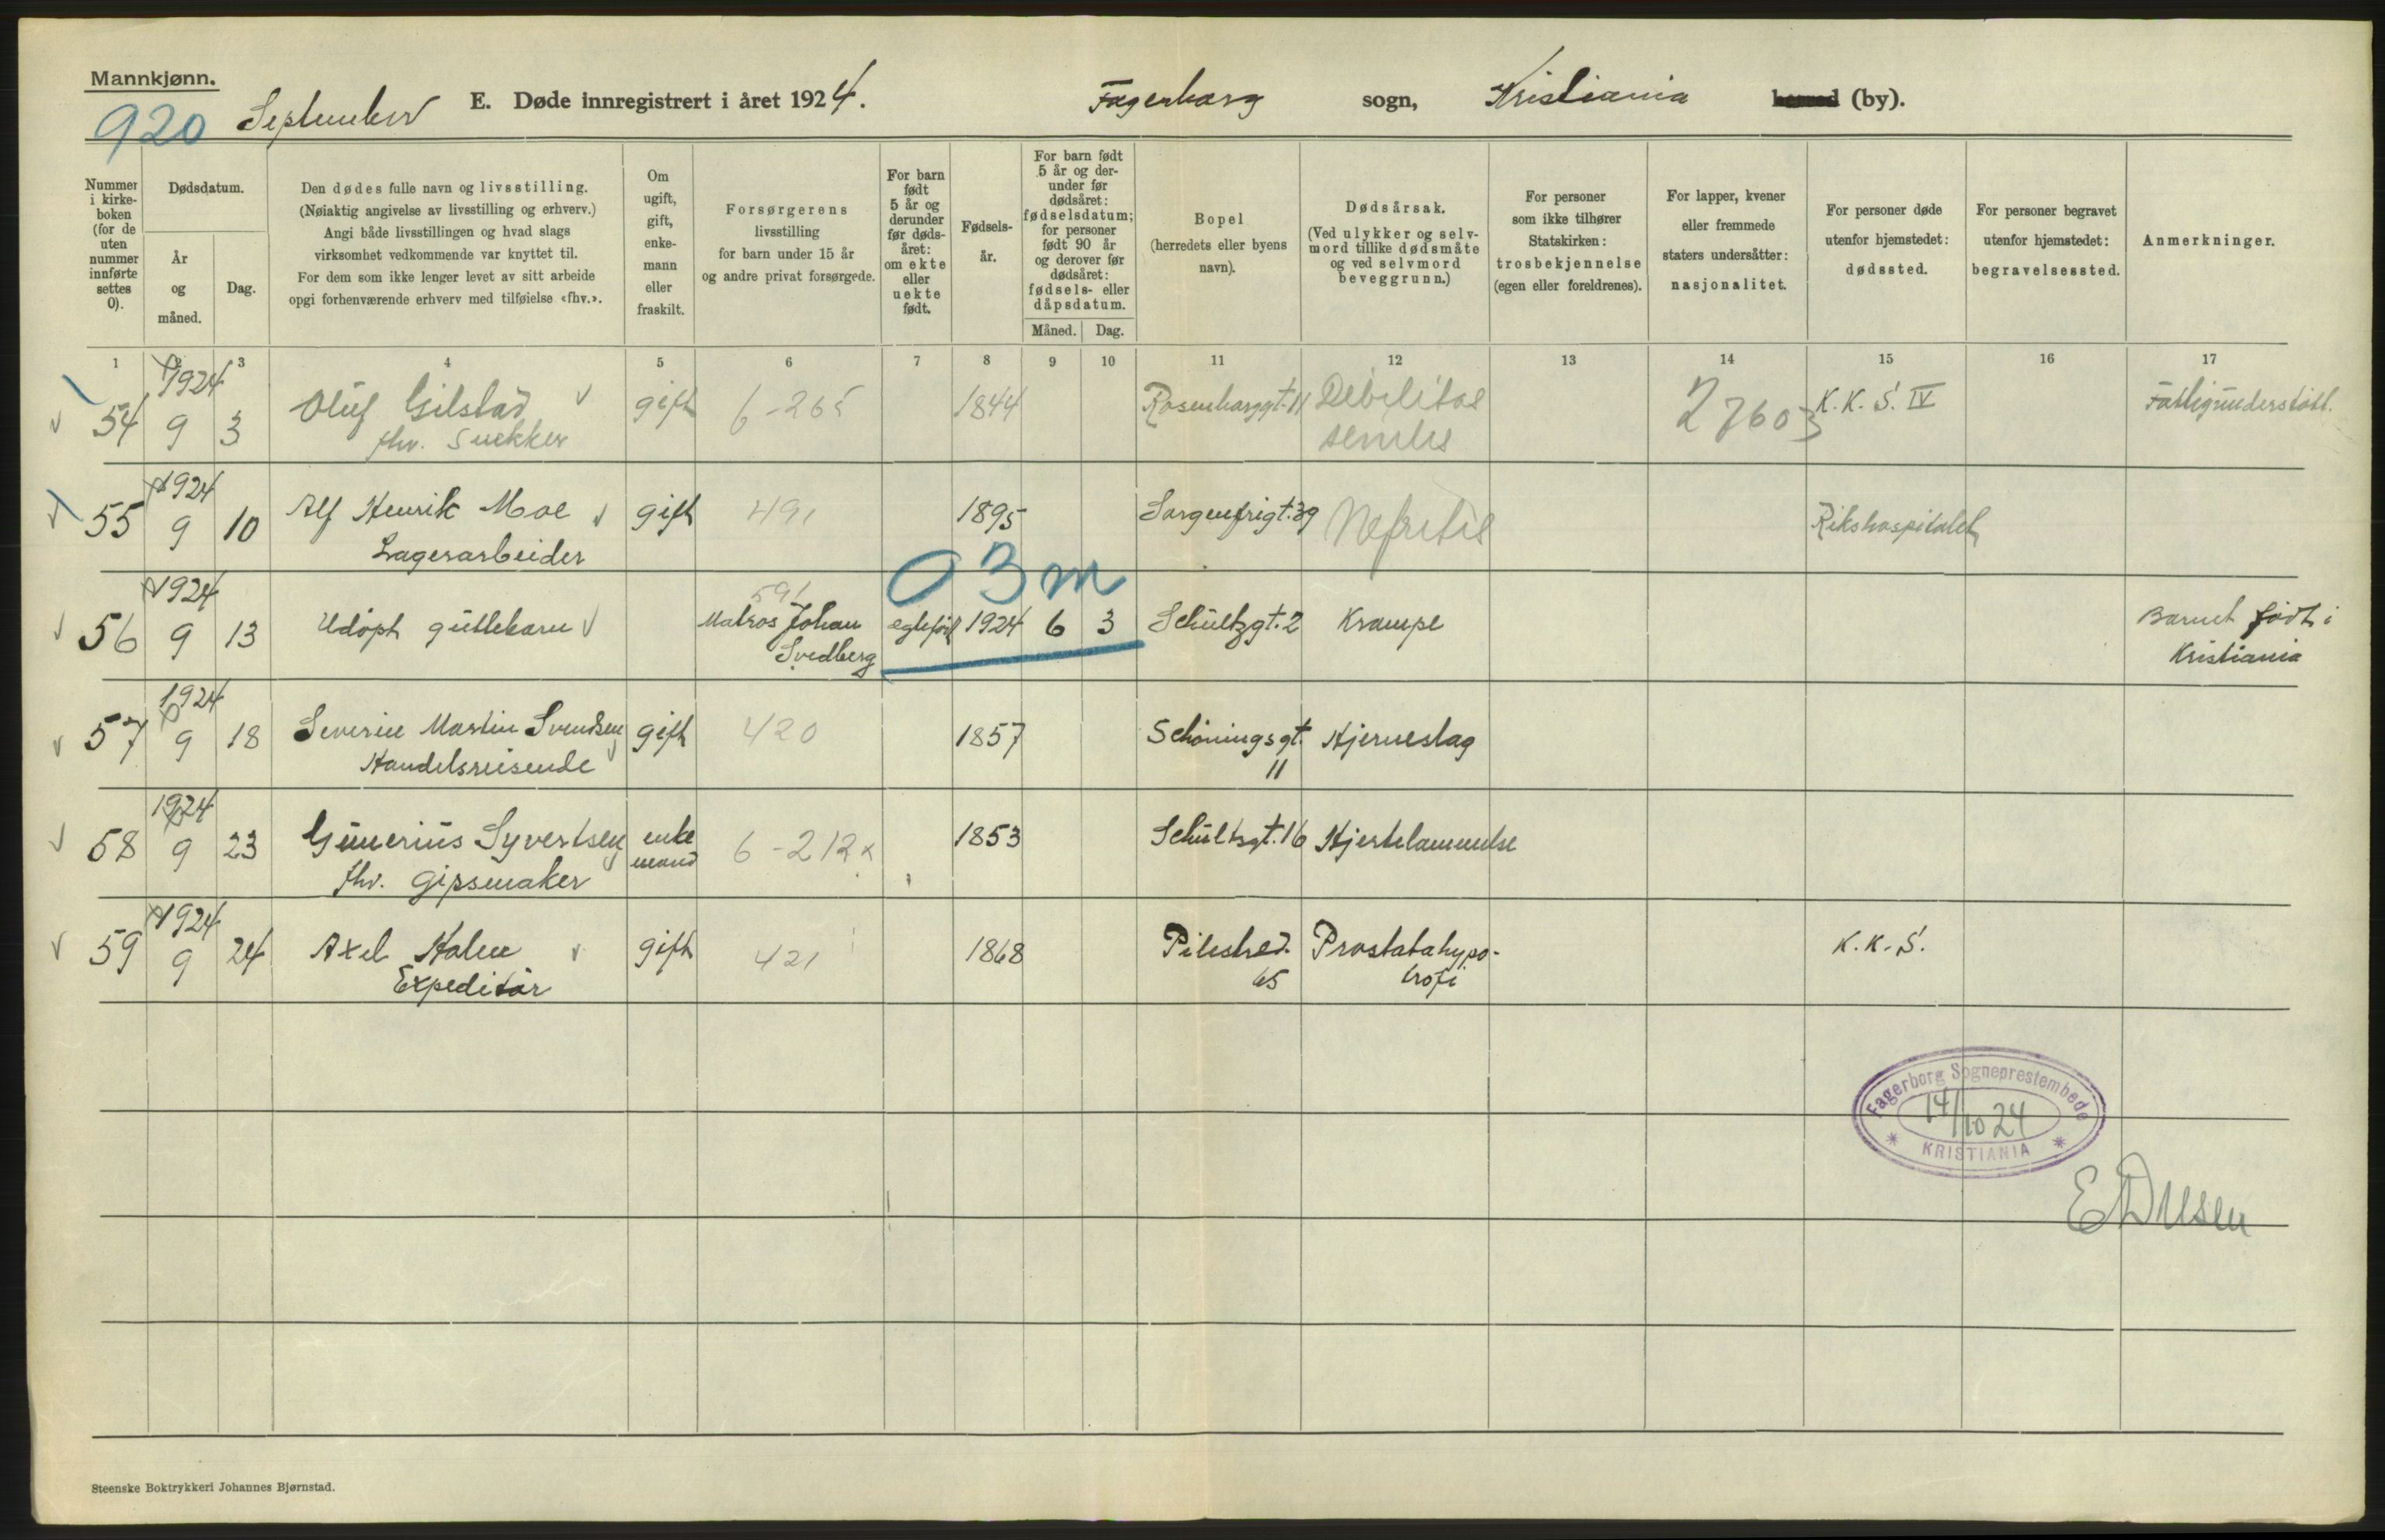 Mannkjønn.
920 September E. Døde innregistrert i året 1924. Fagerborg sogn, Kristiania herred (by).
Nummer i kirke- boken (for de uten nummer innførte settes 0).
Dødsdatum.
År og måned.
Dag.
Den dødes fulle navn og livsstilling.
(Nøiaktig angivelse av livsstilling og erhverv.)
Angi både livsstillingen og hvad slags
virksomhet vedkommende var knyttet til.
For dem som ikke lenger levet av sitt arbeide
opgi forhenværende erhverv med tilføielse «fhv.».
Om ugift, gift, enke- mann eller fraskilt.
Forsørgerens
livsstilling
for barn under 15 år
og andre privat forsørgede.
For barn født 5 år og derunder før døds- året: om ekte eller uekte født.
Fødsels- år.
For barn født 5 år og der- under før dødsåret: fødselsdatum; for personer født 90 år og derover før dødsåret: fødsels- eller dåpsdatum.
Måned. Dag.
Bopel
(herredets eller byens
navn).
Dødsårsak.
(Ved ulykker og selv-
mord tillike dødsmåte
og ved selvmord
beveggrunn.)
For personer
som ikke tilhører
Statskirken:
trosbekjennelse
(egen eller foreldrenes).
For lapper, kvener
eller fremmede
staters undersåtter:
nasjonalitet.
For personer døde
utenfor hjemstedet:
dødssted.
For personer begravet
utenfor hjemstedet:
begravelsessted.
Anmerkninger.
1 2 3 4 5 6 7 8 9 10 11 12 13 14 15 16 17
1924
54 9 3 Oluf Gilstad gift 6-265 1844 Rosenborggt. 11 Debilitas 27603 K.K.S. IV Fattigunderstøtt.
fhv. snekker senilis
1924
55 9 10 Alf Henrik Moe gift 491 1895 Sorgenfrigt. 39 Nefritis Rikshospitalet
Lagerarbeider
03m
1924 591
56 9 13 Udøpt guttebarn Matros Johan egtefød 1924 6 3 Schultzgt. 2 Krampe Barnet født i
Svedberg Kristiania
1924
57 9 18 Severin Martin Svendsen gift 420 1857 Schøningsgt. Hjerneslag
Handelsreisende 11
1924
58 9 23 Gunerius Syvertsen enke 6-212x 1853 Schultzgt. 16 Hjertelammelse
fhv. gipsmaker mand
1924
59 9 24 Axel Holm gift 421 1868 Pilestred. Prostatahypo- K.K.S.
Expeditør 65 trofi
Fagerborg Sogneprestembede
14/10 24
* KRISTIANIA *
Steenske Boktrykkeri Johannes Bjørnstad.